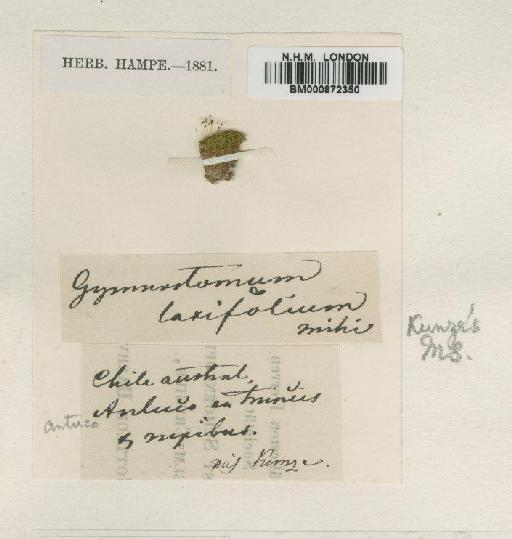 HERB. HAMPE.—1881.
N.H.M. LONDON
BM000872350
Gymnostomum
laxifolium
mihi
Kunze's
MS.
Chile austral.
Antuco
rupibus.
antuco
Kunze.